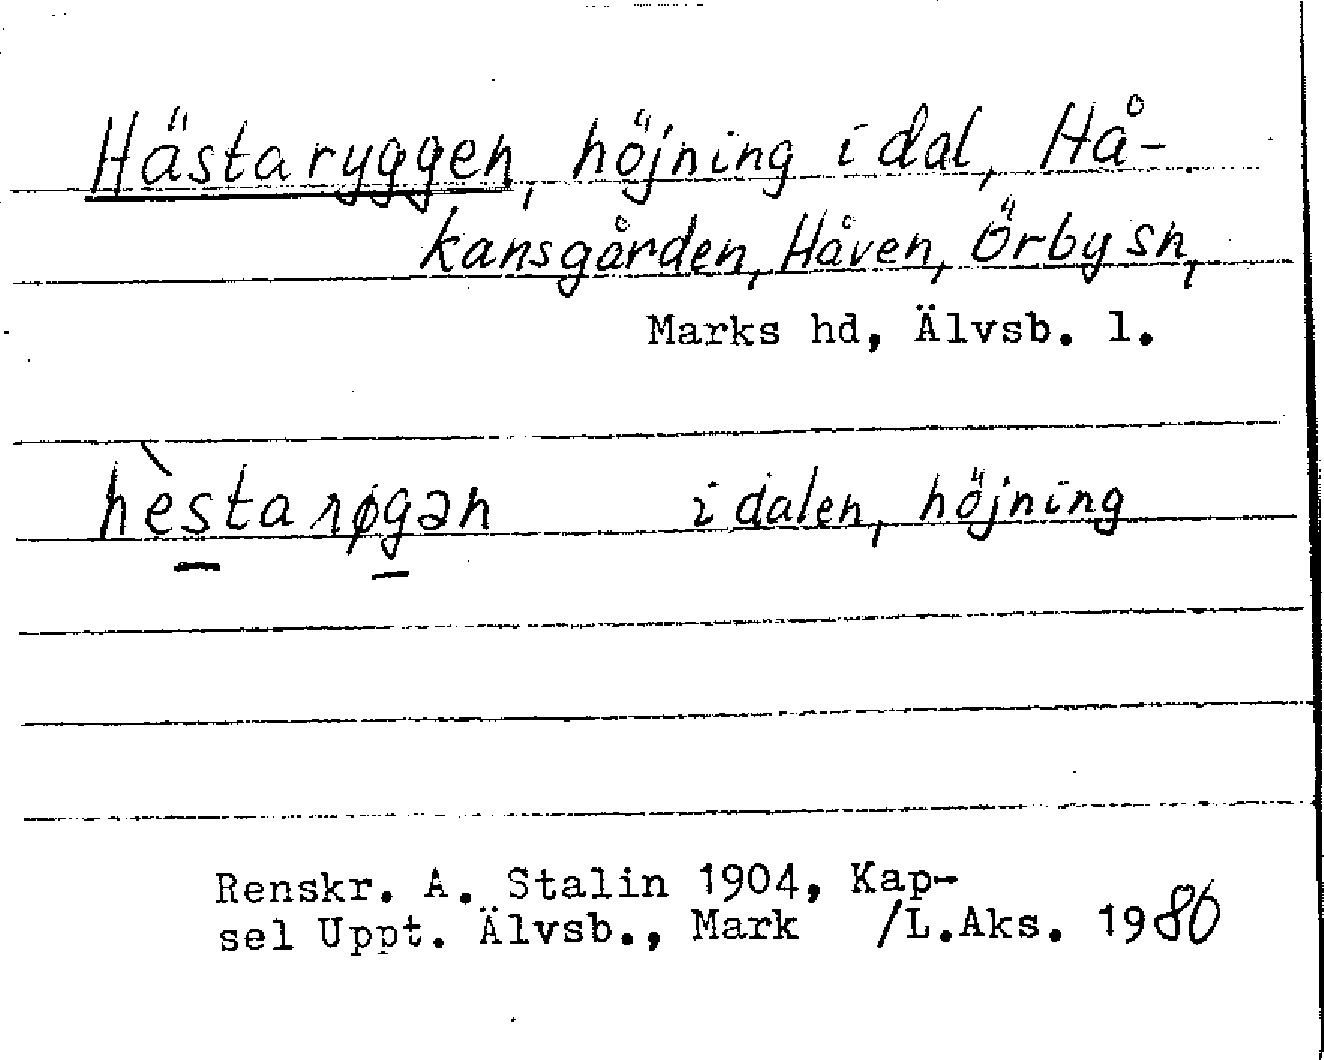 Hästaryggen, höjning i dal, Hå-
kansgården, Håven, Örby sn,
Marks hd, Älvsb. l.
hèsta ɿøgən i dalen, höjning
Renskr. A. Stalin 1904, Kap-
sel Uppt. Älvsb., Mark /L.Aks. 1986